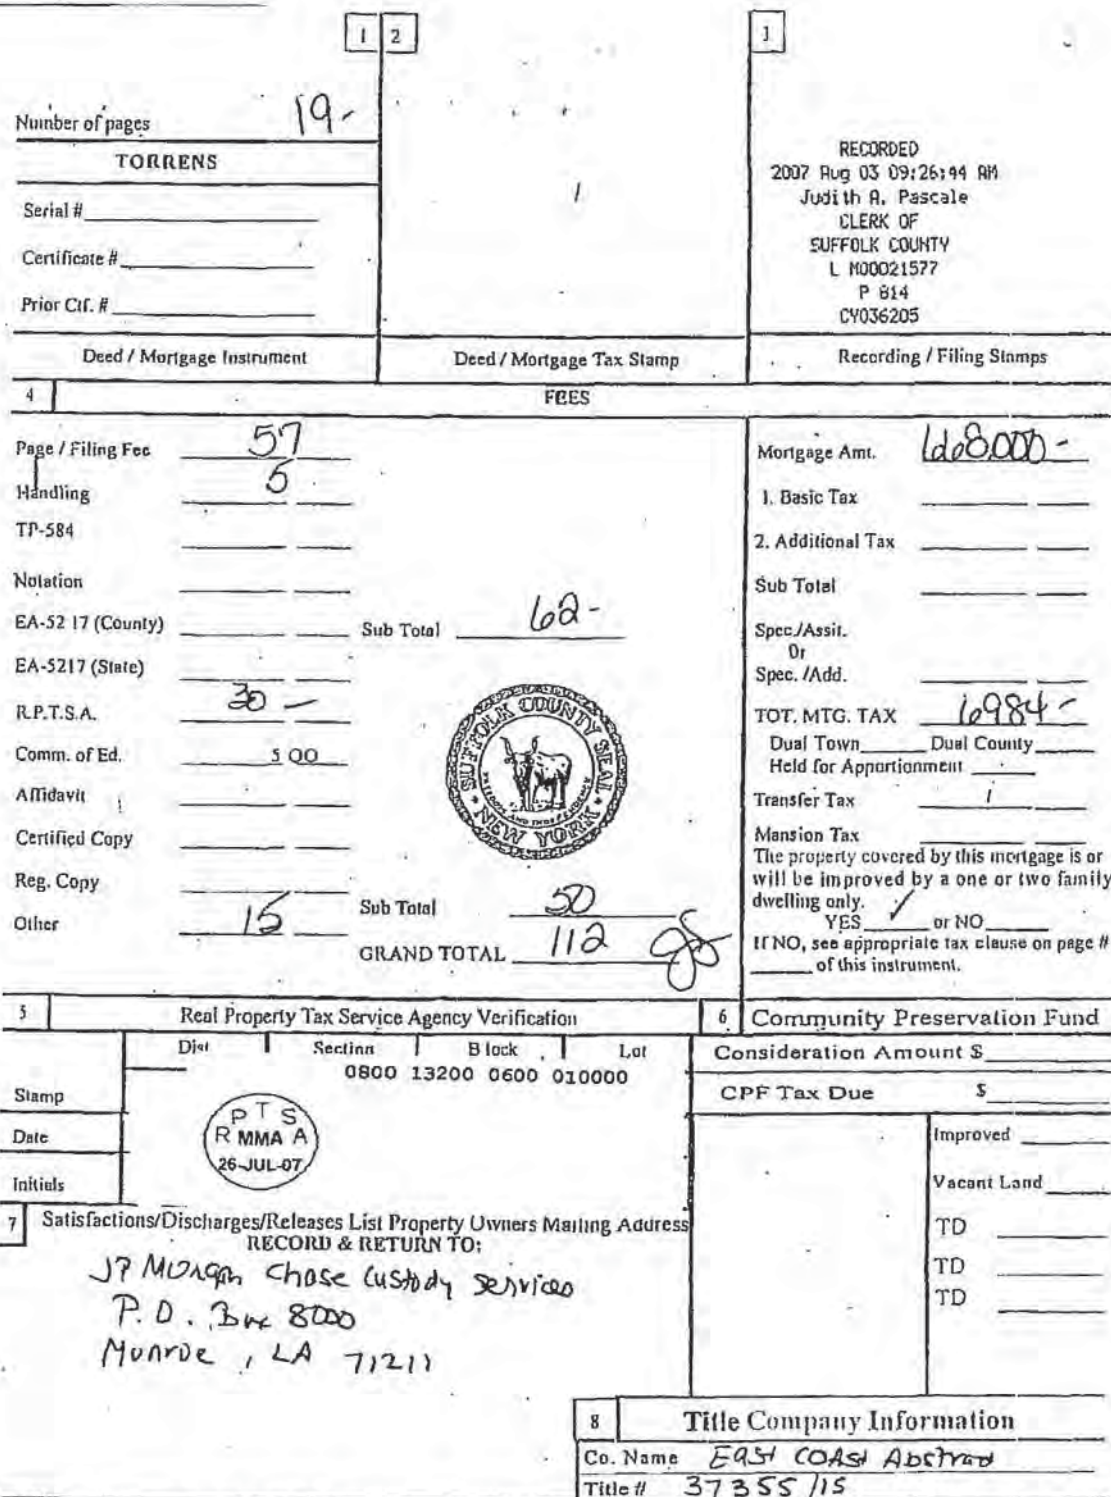 1 2 1
Number of pages 19-
TORRENS
Serial #
Certificate #
Prior Ctf. #
RECORDED
2007 Aug 03 09:26:44 AM
Judith A. Pascale
CLERK OF
SUFFOLK COUNTY
L M00021577
P 814
CY036205
Deed / Mortgage Instrument
Deed / Mortgage Tax Stamp
Recording / Filing Stamps
4 FEES
Page / Filing Fee 57
Handling 5
TP-584
Notation
EA-52 17 (County)
EA-5217 (State)
R.P.T.S.A. 30 —
Comm. of Ed. 5 00
Affidavit
Certified Copy
Reg. Copy
Other 15
Sub Total 62-
SUFFOLK COUNTY SEAL
NEW YORK
Sub Total 50
GRAND TOTAL 112
Mortgage Amt. 668,000-
1. Basic Tax
2. Additional Tax
Sub Total
Spec./Assit.
Or
Spec. /Add.
TOT. MTG. TAX 6984-
Dual Town Dual County
Held for Apportionment
Transfer Tax
Mansion Tax
The property covered by this mortgage is or
will be improved by a one or two family
dwelling only.
YES ✓ or NO
If NO, see appropriate tax clause on page #
of this instrument.
5 Real Property Tax Service Agency Verification
Dist Section Block Lot
0800 13200 0600 010000
Stamp
Date
Initials
P T S
R MMA A
26-JUL-07
6 Community Preservation Fund
Consideration Amount $
CPF Tax Due $
Improved
Vacant Land
TD
TD
TD
7 Satisfactions/Discharges/Releases List Property Owners Mailing Address
RECORD & RETURN TO:
JP Morgan Chase Custody Services
P.O. Box 8000
Monroe, LA 71211
8 Title Company Information
Co. Name East Coast Abstract
Title # 37355/15